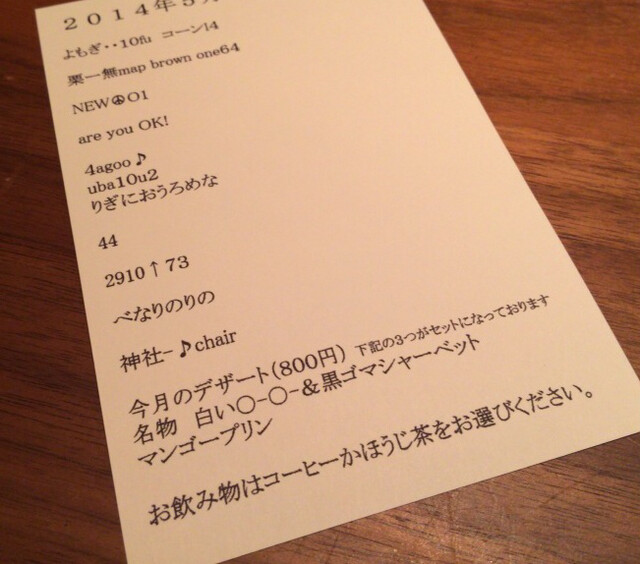 ２０１４年５月
よもぎ・・10fu　コーン|4
栗一無map brown one64
NEW☮O1
are you OK!
4agoo♪
uba10u2
りぎにおうろめな
44
2910↑73
べなりのりの
神社-♪chair
今月のデザート(800円) 下記の3つがセットになっております
名物　白い○-○-&黒ゴマシャーベット
マンゴープリン
お飲み物はコーヒーかほうじ茶をお選びください。